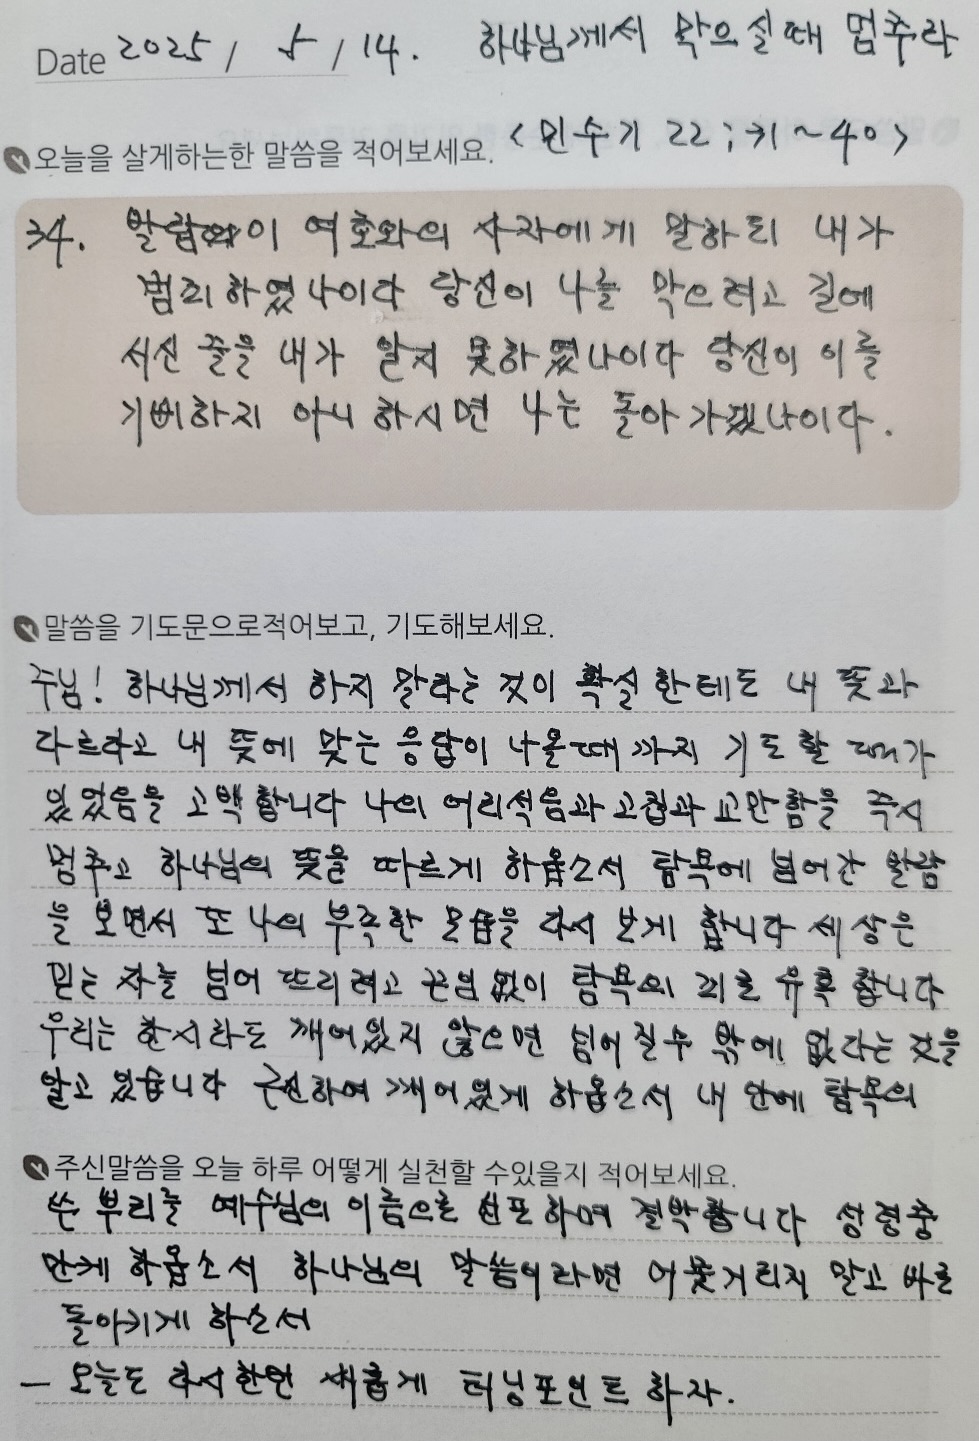 Date 2025 / 5 / 14. 하나님께서 막으실때 멈추라
<민수기 22 ; 31 ~ 40>
오늘을 살게하는한 말씀을 적어보세요.
34. 발람이 여호와의 사자에게 말하되 내가
범죄하였나이다 당신이 나를 막으려고 길에
서신 줄을 내가 알지 못하였나이다 당신이 이를
기뻐하지 아니하시면 나는 돌아가겠나이다.
말씀을 기도문으로적어보고, 기도해보세요.
주님! 하나님께서 하지 말라는 것이 확실한데도 내 뜻과
다르다고 내 뜻에 맞는 응답이 나올때까지 기도할 때가
있었음을 고백합니다 나의 어리석음과 고집과 교만함을 즉시
멈추고 하나님의 뜻을 따르게 하옵소서 탐욕에 넘어간 발람
을 보면서 또 나의 부족한 모습을 다시 보게 합니다 세상은
믿는 자를 넘어 뜨리려고 끈임없이 탐욕의 죄로 유혹합니다
우리는 한시라도 깨어있지 않으면 넘어질수 밖에 없다는 것을
알고 있습니다 근신하여 깨어있게 하옵소서 내 안에 탐욕의
주신말씀을 오늘 하루 어떻게 실천할 수있을지 적어보세요.
쓴 뿌리를 예수님의 이름으로 선포하며 결박합니다 성령충
만케 하옵소서 하나님의 말씀이라면 어물거리지 말고 바로
돌아키게 하소서
- 오늘도 다시한번 새롭게 터닝포인트 하자.